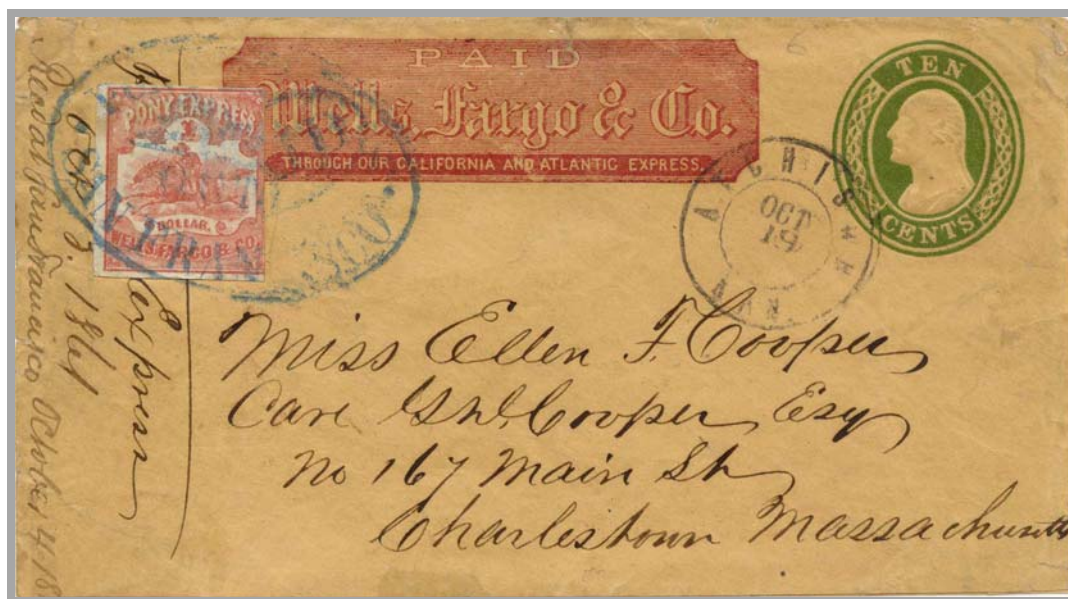 PAID
Wells, Fargo & Co.
THROUGH OUR CALIFORNIA AND ATLANTIC EXPRESS.
TEN
CENTS
PONY EXPRESS
1
DOLLAR.
WELLS, FARGO & CO.
SAN FRANCISCO
ATCHISON
OCT
19
KAN
Miss Ellen F. Cooper
Care
Cooper Esq
No 167 Main St
Charlestown Massachusetts
Express
3. 1861
San Francisco October 4. 18